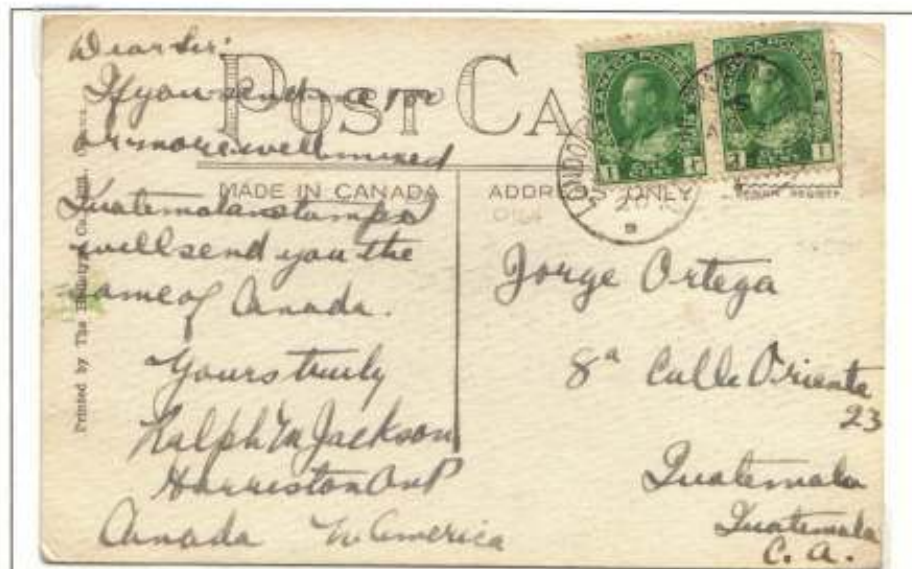 Dear Sir:
If you send me 100
or more well mixed
Guatemalan stamps I
will send you the
same of Canada.
Yours truly
Ralph M Jackson
Harriston Ont
Canada N. America
POST CA
MADE IN CANADA
ADDRESS ONLY
Printed by The
CANADA POSTAGE
1 1
CANADA POSTAGE
1 1
LONDON
Jorge Ortega
8a Calle Oriente
23
Guatemala
Guatemala
C. A.